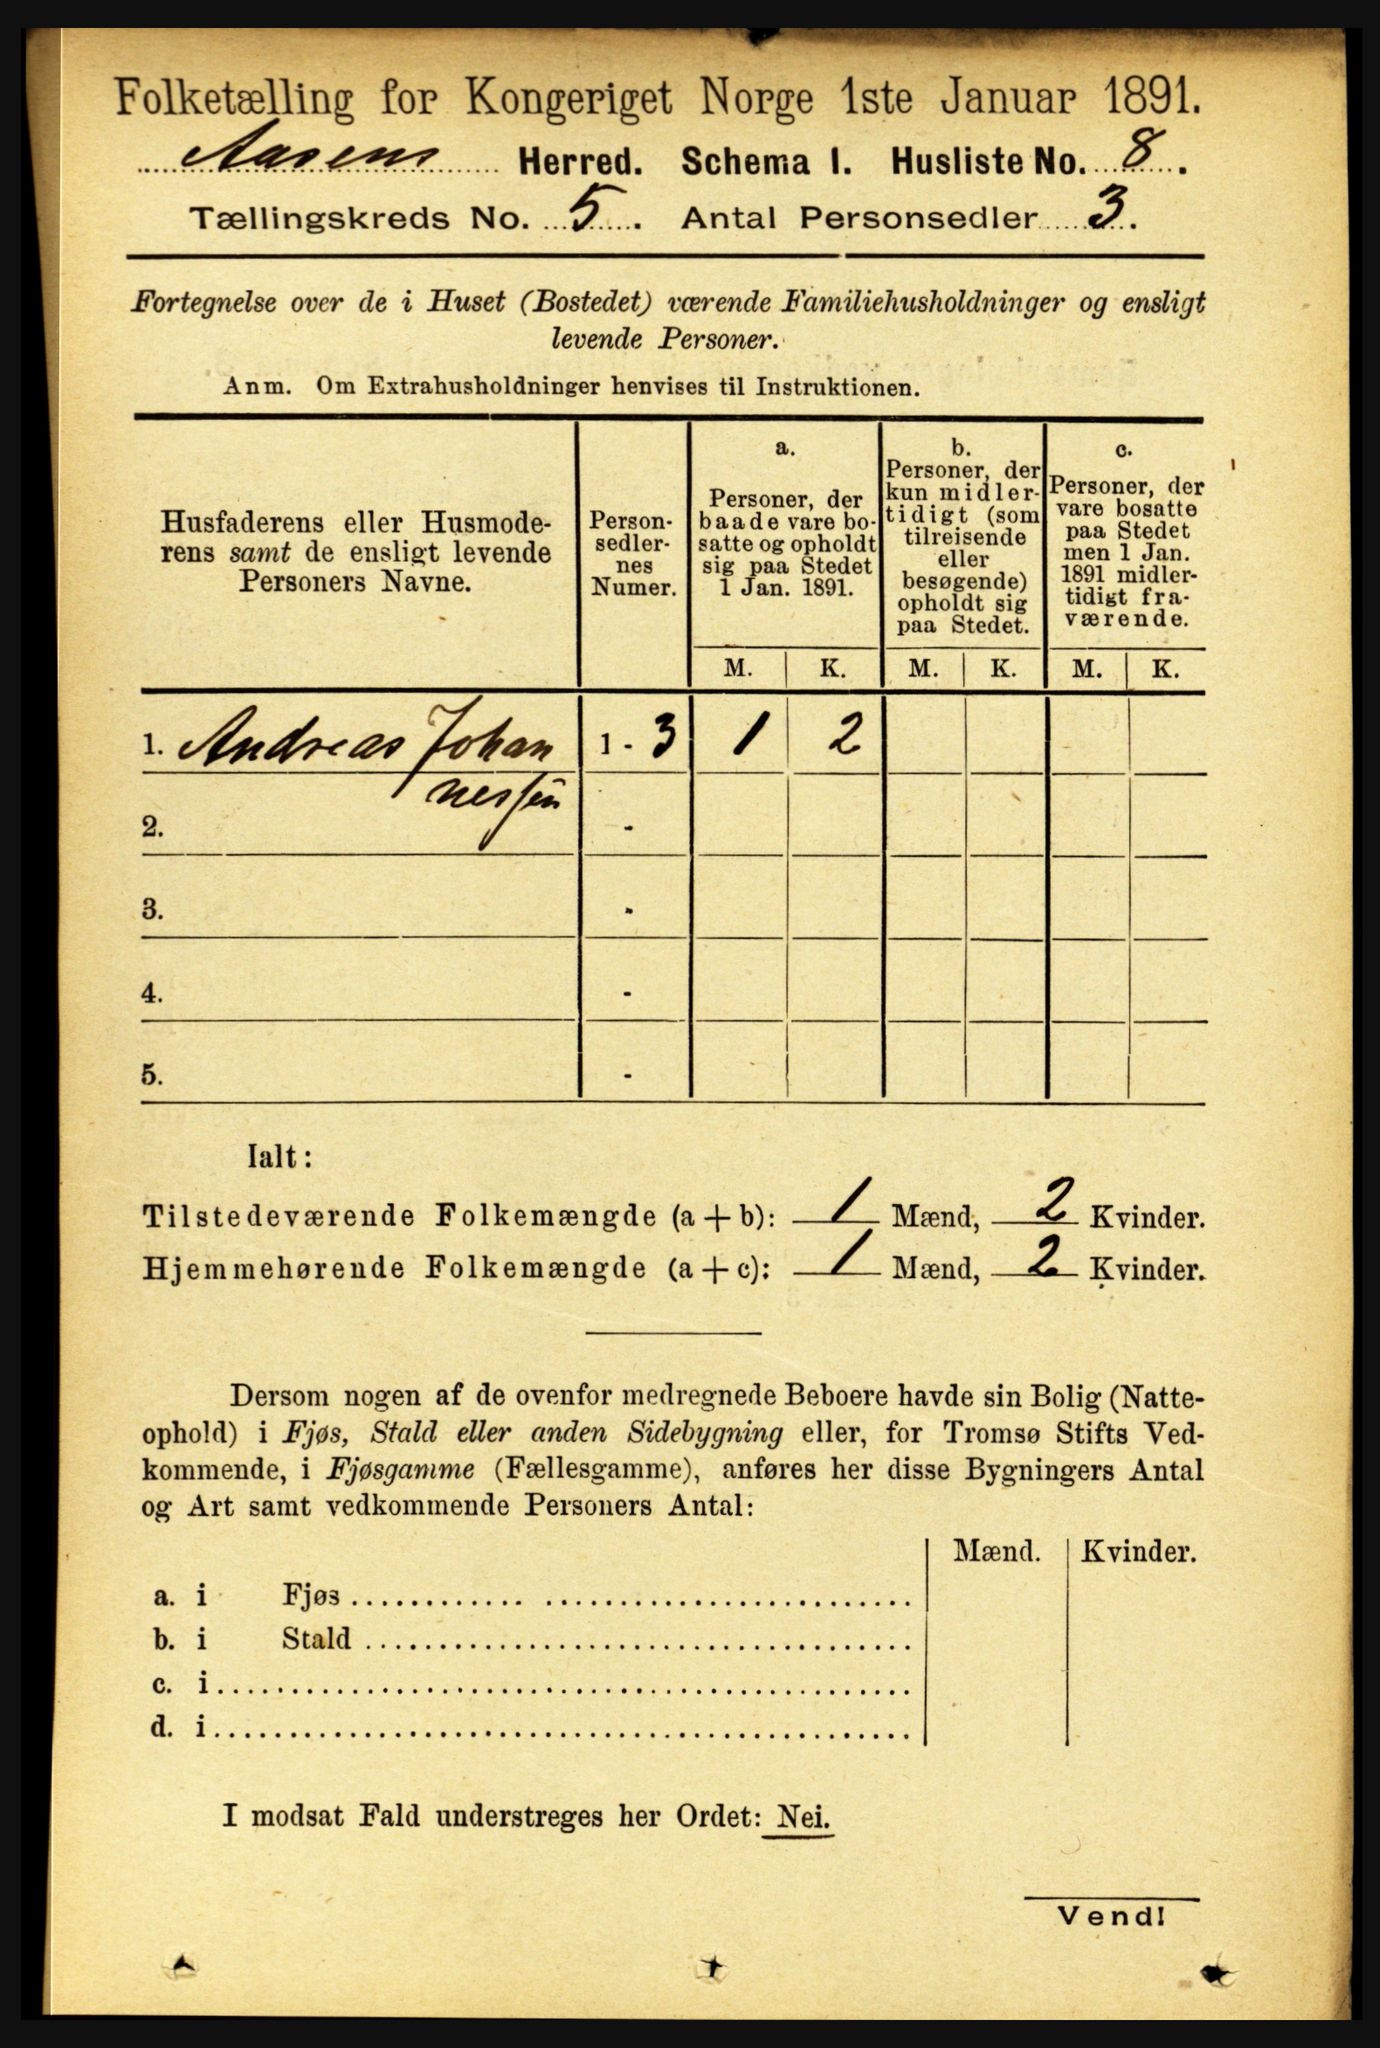 Folketælling for Kongeriget Norge 1ste Januar 1891.
Aasens Herred. Schema I. Husliste No. 8.
Tællingskreds No. 5. Antal Personsedler 3.
Fortegnelse over de i Huset (Bostedet) værende Familiehusholdninger og ensligt
levende Personer.
Anm. Om Extrahusholdninger henvises til Instruktionen.
Husfaderens eller Husmode-
rens samt de ensligt levende
Personers Navne.
Person-
sedler-
nes
Numer.
a.
Personer, der
baade vare bo-
satte og opholdt
sig paa Stedet
1 Jan. 1891.
b.
Personer, der
kun midler-
tidigt (som
tilreisende
eller
besøgende)
opholdt sig
paa Stedet.
c.
Personer, der
vare bosatte
paa Stedet
men 1 Jan.
1891 midler-
tidigt fra-
værende.
M. K. M. K. M. K.
1. Andreas Johan 1 - 3 1 2
nessen
2. -
3. -
4. -
5. -
Ialt:
Tilstedeværende Folkemængde (a + b): 1 Mænd, 2 Kvinder.
Hjemmehørende Folkemængde (a + c): 1 Mænd, 2 Kvinder.
Dersom nogen af de ovenfor medregnede Beboere havde sin Bolig (Natte-
ophold) i Fjøs, Stald eller anden Sidebygning eller, for Tromsø Stifts Ved-
kommende, i Fjøsgamme (Fællesgamme), anføres her disse Bygningers Antal
og Art samt vedkommende Personers Antal:
Mænd. Kvinder.
a. i Fjøs
b. i Stald
c. i
d. i
I modsat Fald understreges her Ordet: Nei.
Vend!